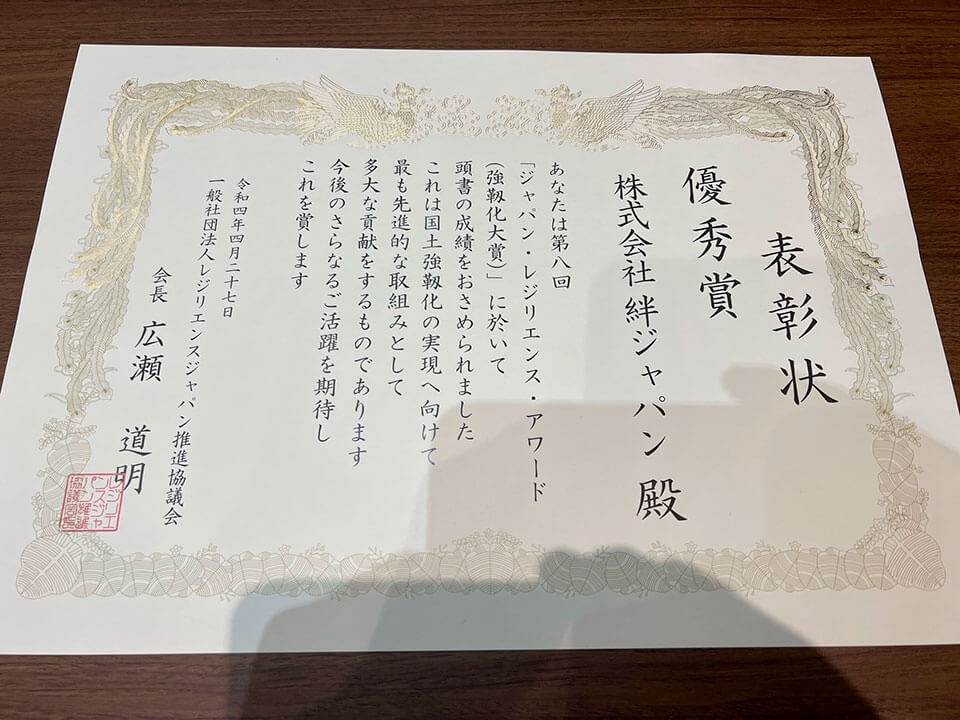 表彰状
優秀賞
株式会社 絆ジャパン 殿
あなたは第八回
「ジャパン・レジリエンス・アワード
(強靱化大賞)」に於いて
頭書の成績をおさめられました
これは国土強靱化の実現へ向けて
最も先進的な取組みとして
多大な貢献をするものであります
今後のさらなるご活躍を期待し
これを賞します
令和四年四月二十七日
一般社団法人レジリエンスジャパン推進協議会
会長 広瀬 道明
レジリエ
ンスジャ
パン推進